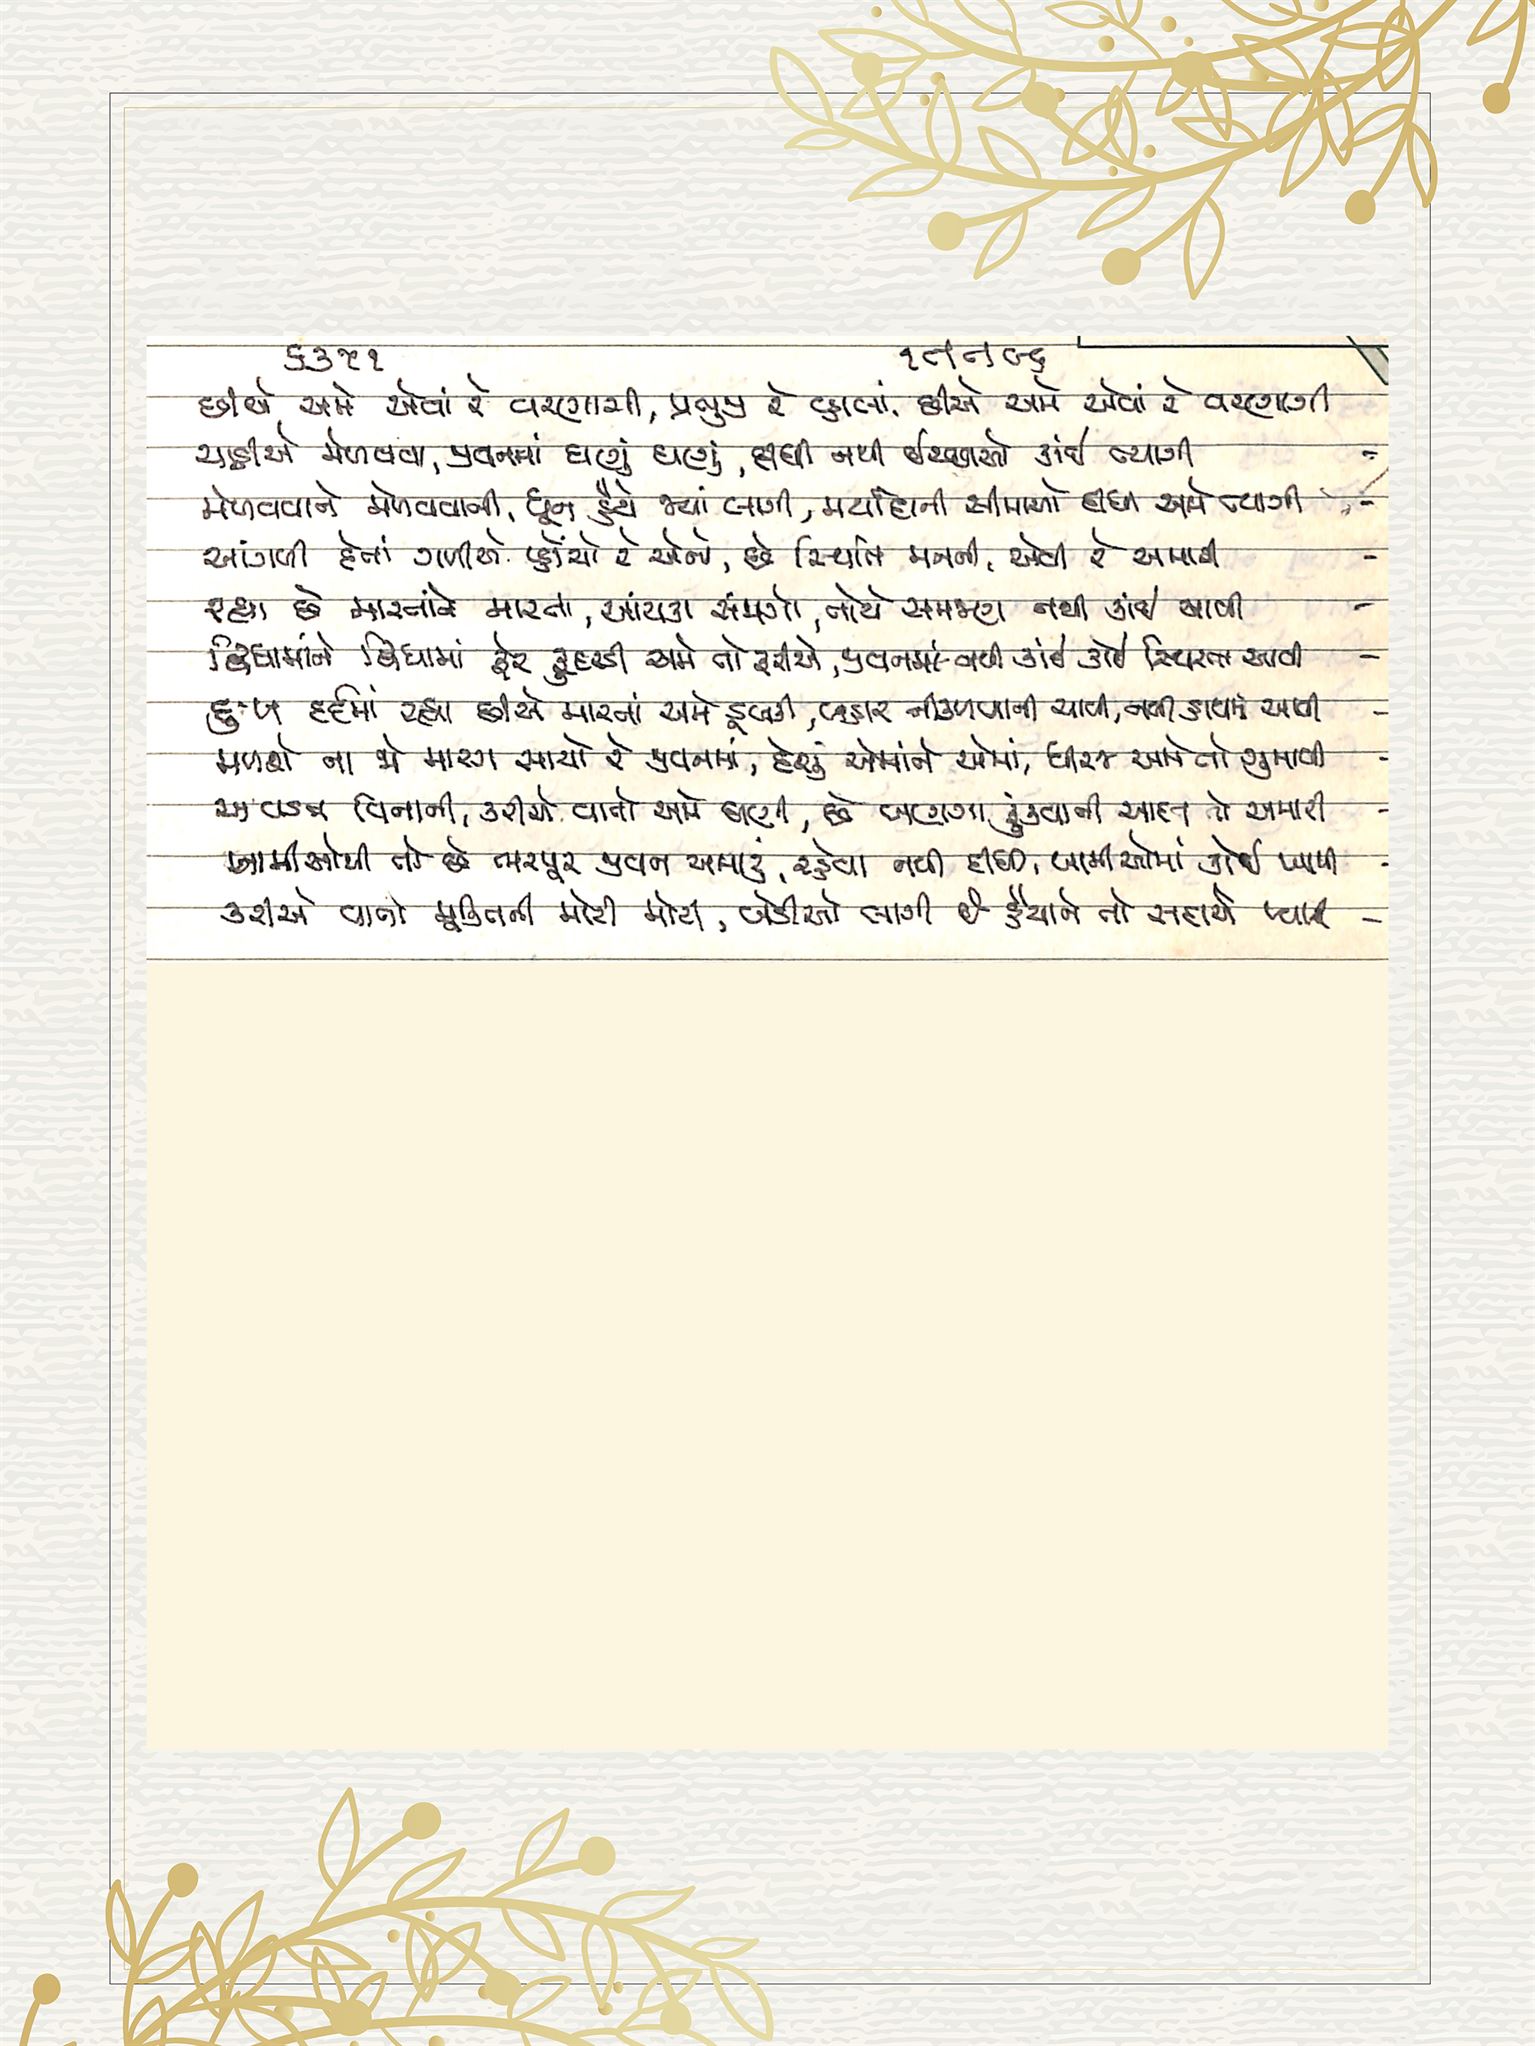 ૬૩૫૧
છીએ અમે એવાં રે વરણાગી, પ્રભુજી રે વ્હાલાં, છીએ અમે એવાં રે વરણાગી
ચાહીએ મેળવવા, જીવનમાં ઘણું ઘણું, દીધી નથી ઈચ્છાઓ કાંઈ ત્યાગી -
મેળવવાને મેળવવાની, ધૂન હૈયે જ્યાં લાગી, મર્યાદાની સીમાઓ દીધી અમે ત્યાગી -
આંગળી દેતાં ગળીએ પ્હોંચો રે એનો, છે સ્થિતિ મનની, એવી રે અમારી -
રહ્યા છે મારતાંને મારતા, આંચકા સંજોગો, તોયે સમજણ નથી કાંઈ આવી -
દ્વિધામાંને દ્વિધામાં ફેર ફુદરડી અમે તો ફરીએ, જીવનમાં નથી કાંઈ કોઈ સ્થિરતા આવી -
દુઃખ દર્દમાં રહ્યા છીએ મારતાં અમે ડૂબકી, બહાર નીકળવાની ચાવી, નથી હાથમાં આવી -
મળશે ના જો મારગ સાચો રે જીવનમાં, દેશું એમાંને એમાં, ધીરજ અમે તો ગુમાવી -
આવડત વિનાની, કરીએ વાતો અમે ઘણી, છે બણગા ફૂંકવાની આદત તો અમારી -
ખામીઓથી તો છે ભરપૂર જીવન અમારું, રહેવા નથી દીધી, ખામીઓમાં કોઈ ખામી -
કરીએ વાતો મુક્તિની મોટી મોટી, બેડીઓ લાગી છે હૈયાને તો સદાયે પ્યારી -